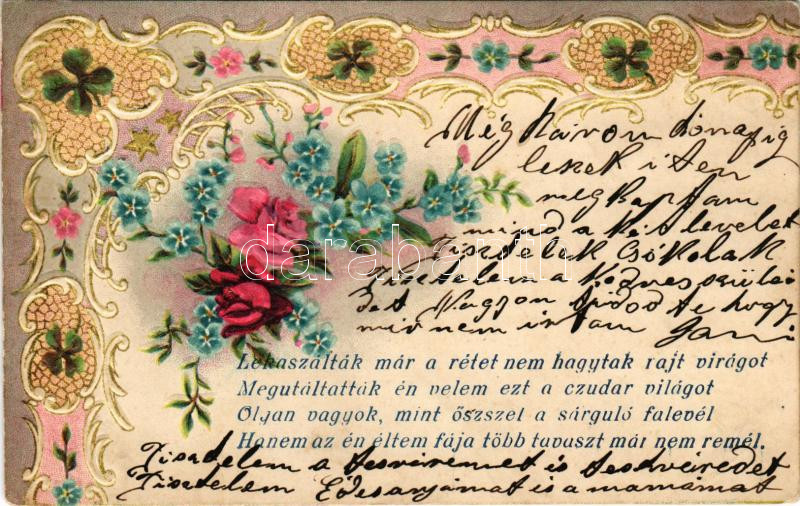 Még három hónapig
leszek iten
meg kaptam
mind a két levelet
Tisztelek Csókolak
Tisztelem a kedves szülei
det Nagyon tudod te hogy
mir nem irtam Jani
Lekaszálták már a rétet nem hagytak rajt virágot
Megutáltatták én velem ezt a czudar világot
Olyan vagyok, mint őszszel a sárguló falevél
Hanem az én éltem fája több tavaszt már nem remél.
Tisztelem a testvéremet is testvéredet
Tisztelem Édesanyámat is a mamámat
darabanth